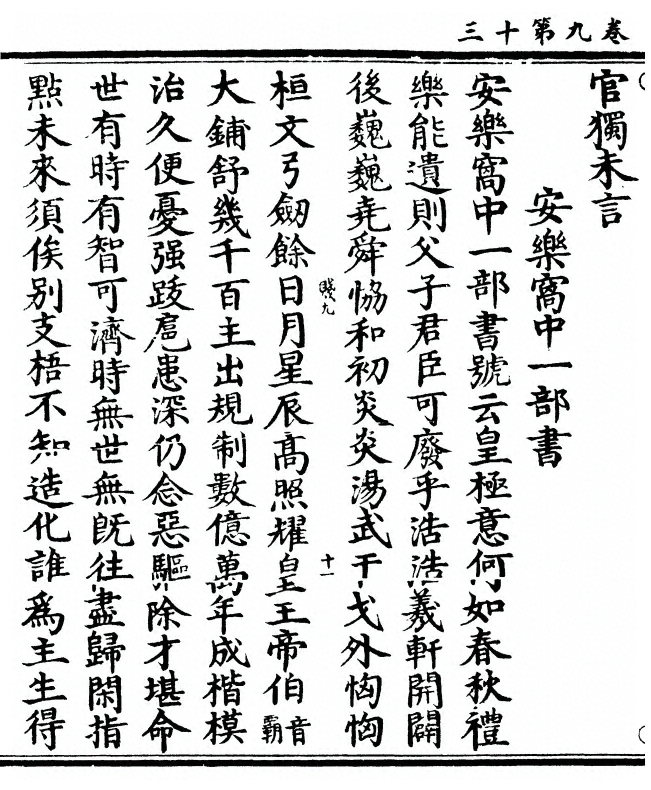 卷九第十三
官獨未言
安樂窩中一部書
安樂窩中一部書號云皇極意何如春秋禮
樂能遺則父子君臣可廢乎浩浩羲軒開闢
後巍巍堯舜恊和初炎炎湯武干戈外恟恟
九
十一
桓文弓劔餘日月星辰高照耀皇王帝伯音霸
大鋪舒幾千百主出規制數億萬年成楷模
治久便憂强跋扈患深仍念惡驅除才堪命
世有時有智可濟時無世無旣往盡歸閑指
點未來須俟别支梧不知造化誰爲主生得